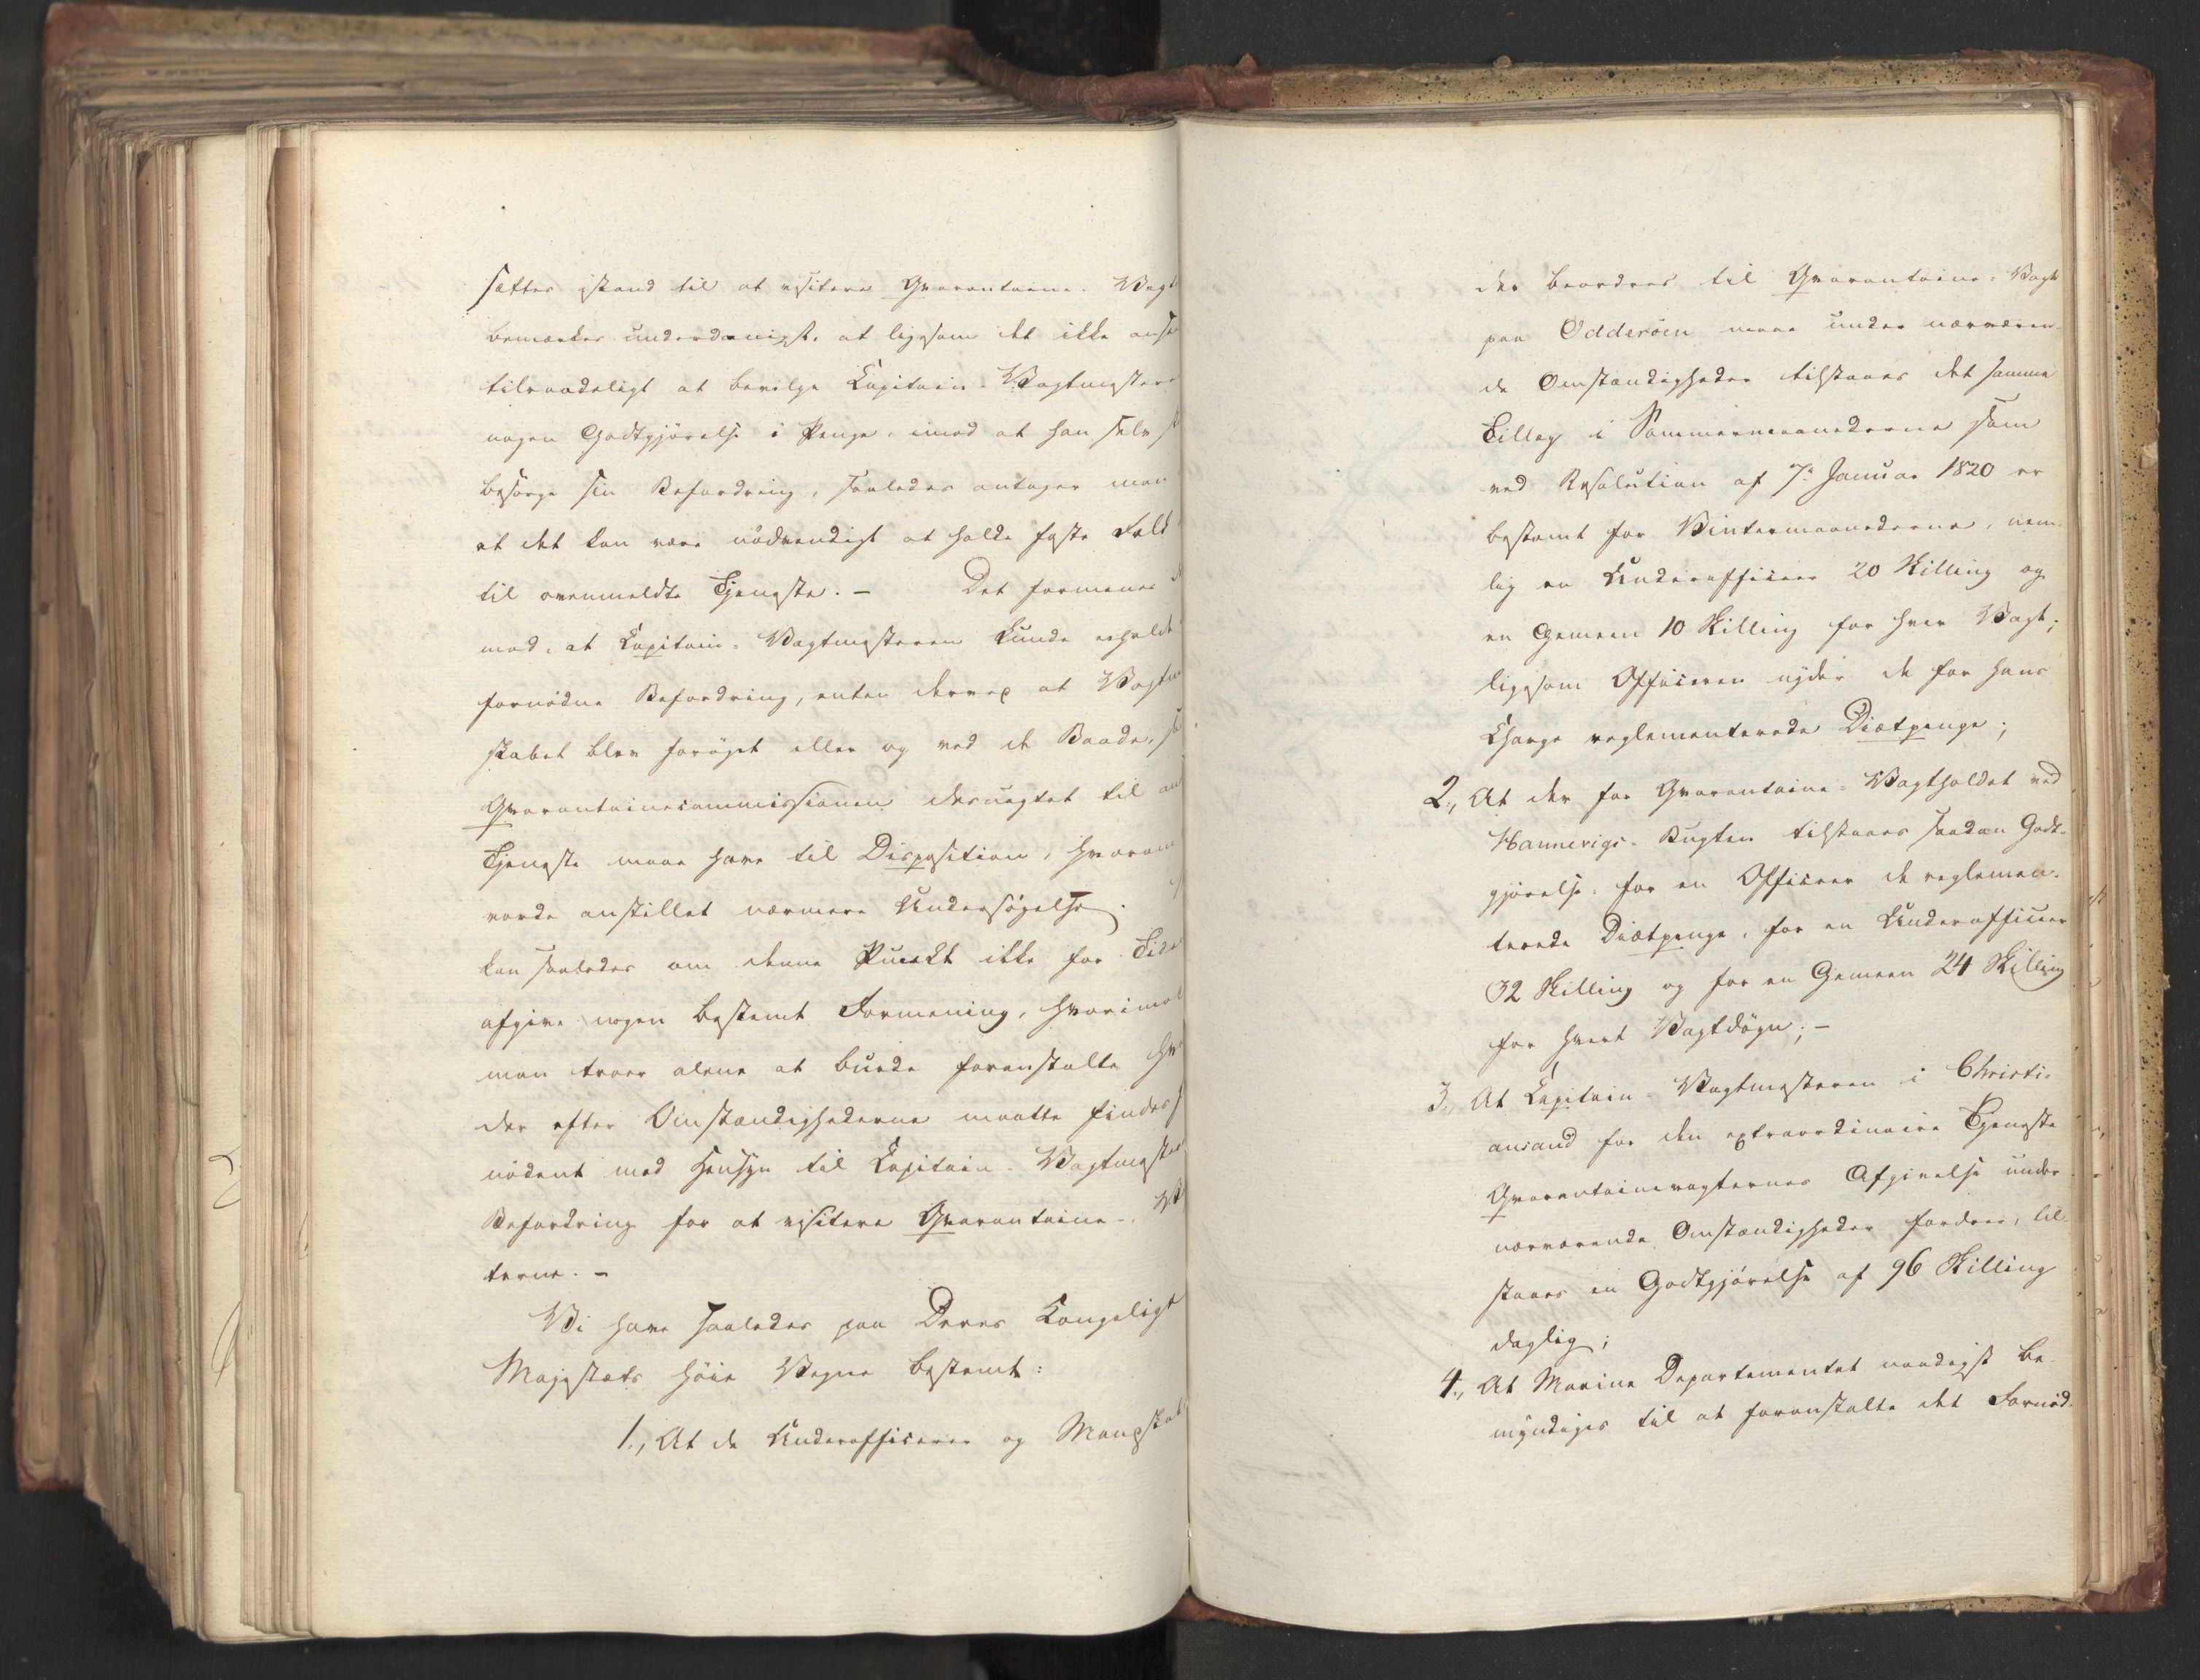 sættes istand til at visitere Qvarantaine-Vagt
bemærkes underdanigst, at ligesom det ikke anse
tilraadeligt at bevilge Capitain-Vagtmestere
nogen Godtgjörelse i Penge, imod at han selv
besörge sin Befordring, saaledes antager man
at det kan være nödvendigt at holde faste Folk
til ovenmeldte Tjeneste. — Det formenes
mod, at Capitain-Vagtmesteren kunde erholde
fornödne Befordring, enten derved at Vagtm
skabet blev foröget eller og ved de Baade, s
Qvarantainecommissionen desuagtet til an
Tjeneste maae have til Disposition, hvorom
vorde anstillet nærmere Undersögelse.
kan saaledes om denne Punkt ikke for Tide
afgive nogen bestemt Formening, hvorimod
man troer alene at burde foranstalte hv
der efter Omstændighederne maatte findes
nödent med Hensyn til Capitain-Vagtmester
Befordring for at visitere Qvarantaine-V
terne. —
Vi have saaledes paa Deres Kongelige
Majestæts höie Vegne bestemt:
1., At de Underofficerer og Mandskab
der beordres til Qvarantaine-Vagt
paa Odderöen maae under nærværen-
de Omstændigheder tilstaaes det samme
Tillæg i Sommermaanederne som
ved Resolution af 7de Januar 1820 er
bestemt for Vintermaanederne, nem-
lig en Underofficeer 20 Skilling og
en Gemeen 10 Skilling for hver Vagt;
ligesom Officeren nyder de for hans
Charge reglementerede Diætpenge;
2., At der for Qvarantaine-Vagtholdet ved
Hannevigs-Bugten tilstaaes saadan Godt-
gjörelse: for en Officeer de reglemen-
terede Diætpenge, for en Underofficeer
32 Skilling og for en Gemeen 24 Skilling
for hvert Vagtdögn; —
3., At Capitain-Vagtmesteren i Christi-
ansand for den extraordinaire Tjeneste
Qvarantainevagternes Afgivelse under
nærværende Omstændigheder fordrer, til-
staaes en Godtgjörelse af 96 Skilling
daglig;
4., At Marine Departementet naadigst be-
myndiges til at foranstalte det Fornöd-